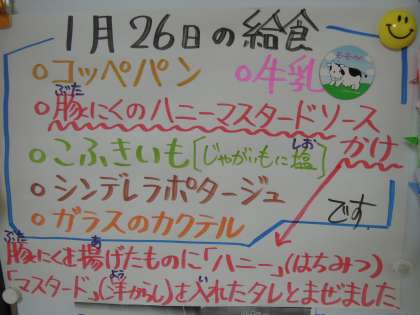 1月26日の給食
○コッペパン ○牛乳
ぶた
○豚にくのハニーマスタードソース
かけ
しお
○こふきいも[じゃがいもに塩]
○シンデレラポタージュ
○ガラスのカクテル です。
ぶた あ
豚にくを揚げたものに「ハニー」(はちみつ)
よう い
「マスタード」(洋からし)を入れたタレとまぜました